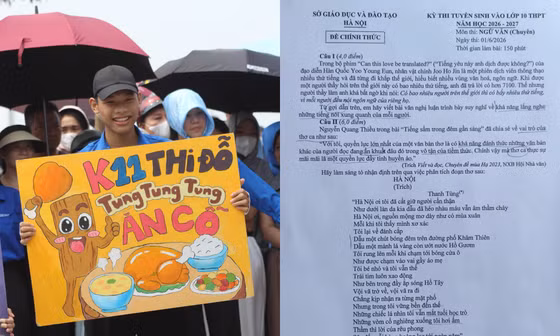 K11 THi ĐỖ
TUNG TUNG TUNG
ĂN CỖ
SỞ GIÁO DỤC VÀ ĐÀO TẠO
HÀ NỘI
ĐỀ CHÍNH THỨC
KỲ THI TUYỂN SINH VÀO LỚP 10 THPT
NĂM HỌC 2026 - 2027
Môn thi: NGỮ VĂN (Chuyên)
Ngày thi: 01/6/2026
Thời gian làm bài: 150 phút
Câu I (4,0 điểm)
Trong bộ phim "Can this love be translated?" ("Tiếng yêu này anh dịch được không?") của
đạo diễn Hàn Quốc Yoo Young Eun, nhân vật chính Joo Ho Jin là một phiên dịch viên thông thạo
nhiều thứ tiếng và đã từng đi khắp thế giới, hiểu biết nhiều vùng văn hoá, ngôn ngữ. Khi được
hỏi thấy hỏi trên thế giới này có bao nhiêu thứ tiếng, anh đã trả lời có hơn 7100. Thế nhưng
người thầy làm anh khá bất ngờ khi nói: Có bao nhiêu người trên thế giới thì có bấy nhiêu thứ tiếng,
vì mỗi người đều nói ngôn ngữ của riêng họ.
Từ gợi dẫn trên, em hãy viết bài văn nghị luận trình bày suy nghĩ về khả năng lắng nghe
những tiếng nói xung quanh của mỗi người.
Câu II (6,0 điểm)
Nguyễn Quang Thiều trong bài "Tiếng sấm trong đêm gần sáng" đã chia sẻ về vai trò của
thơ ca như sau:
"Với tôi, quyền lực lớn nhất của một văn bản thơ là có khả năng đánh thức những văn bản
khác của người đọc đang ẩn khuất đâu đó trong vô tận của tiềm thức. Chính vậy mà thơ ca thực sự
mãi mãi là một quyền lực đầy tính huyền ảo."
(Trích Viết và đọc, Chuyên đề mùa Hạ 2021, NXB Hội Nhà văn)
Hãy làm sáng tỏ nhận định trên qua việc phân tích đoạn thơ sau:
HÀ NỘI
(Trích)
Thanh Tùng(*)
"Hà Nội ơi tôi đã cắt giữ người cẩn thận
Như dưới làn da kia dấu đã héo nhàu máu vẫn âm thầm chảy
Hà Nội ơi, nguồn mộng mơ dày như cỏ mùa xuân
Mỗi khi tôi thấy mình xơ xác
Tôi lại về đánh cắp
Dẫu một chút bóng đêm trên đường phố Khâm Thiên
Dẫu một mảnh lá vàng còn ướt nước Hồ Gươm
Tôi rung lên mỗi khi chạm tới bóng cửa ô
Như được chạm vào vai gầy áo mẹ
Tôi bé nhỏ và tôi vẫn thế
Trái tim luôn xao động
Như bên trong đầy ắp sóng Hồ Tây
Vội vã trở về, vội vã ra đi
Chẳng kịp nhận ra từng mặt phố
Nhưng trong tôi vững bền đến thế
Những chiếc lá nhìn tôi vẫn mắt tuổi học trò
Những vòm cổ nghiêng xuống tôi hơi ấm
Thầm thì lời của rêu phong